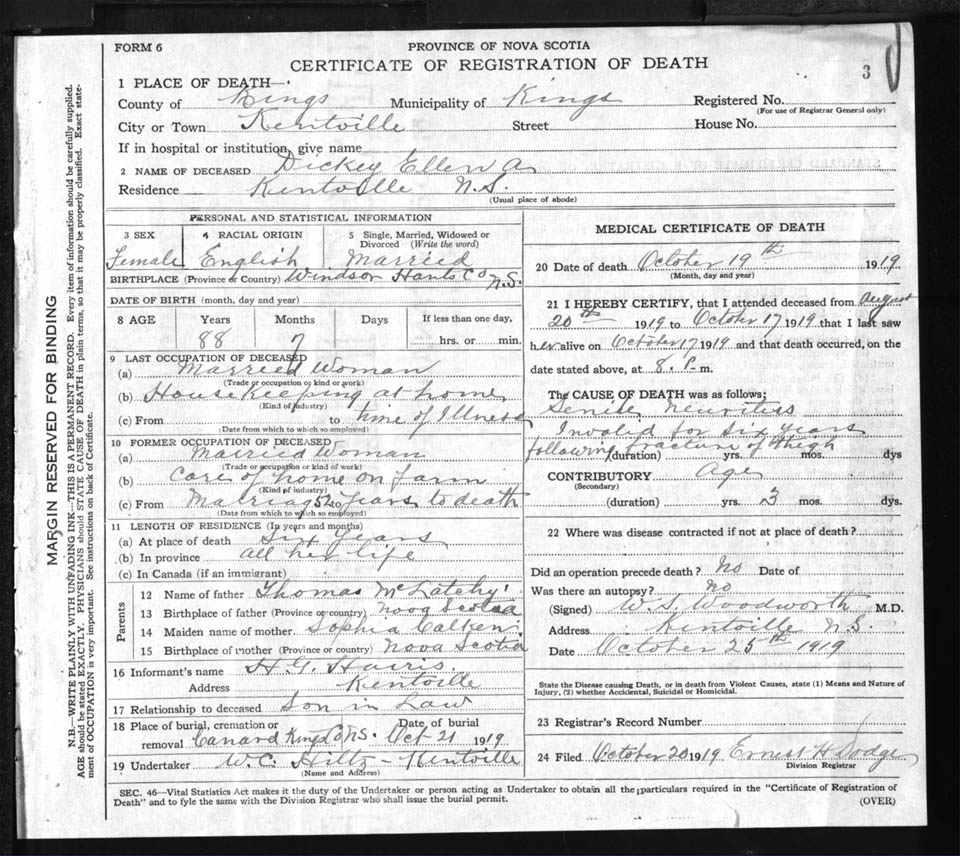 FORM 6
PROVINCE OF NOVA SCOTIA
CERTIFICATE OF REGISTRATION OF DEATH
3
1 PLACE OF DEATH—
County of Kings Municipality of Kings Registered No.
(For use of Registrar General only)
City or Town Kentville Street House No.
If in hospital or institution, give name
2 NAME OF DECEASED Dickey Ellen A.
Residence Kentville N.S.
(Usual place of abode)
PERSONAL AND STATISTICAL INFORMATION
3 SEX 4 RACIAL ORIGIN 5 Single, Married, Widowed or Divorced (Write the word)
Female English Married
BIRTHPLACE (Province or Country) Windsor Hants Co N.S.
DATE OF BIRTH (month, day and year)
8 AGE Years Months Days If less than one day,
88 7 hrs. or min.
9 LAST OCCUPATION OF DECEASED
(a) Married Woman
(Trade or occupation or kind or work)
(b) House keeping at home
(Kind of industry)
(c) From to time of Illness
(Date from which to which so employed)
10 FORMER OCCUPATION OF DECEASED
(a) Married Woman
(Trade or occupation or kind of work)
(b) Care of home on farm
(Kind of industry)
(c) From Marriag 52 to years to death
(Date from which to which so employed)
11 LENGTH OF RESIDENCE (In years and months)
(a) At place of death Six Years
(b) In province all her life
(c) In Canada (if an immigrant)
Parents
12 Name of father Thomas McLatchy
13 Birthplace of father (Province or country) Nova Scotia
14 Maiden name of mother Sophia Calken
15 Birthplace of mother (Province or country) Nova Scotia
16 Informant's name H. G. Harris.
Address Kentville
17 Relationship to deceased Son in Law
18 Place of burial, cremation or removal Canard Kings Co N.S. Date of burial Oct 21 1919
19 Undertaker W.C. Hiltz - Kentville
(Name and Address)
MEDICAL CERTIFICATE OF DEATH
20 Date of death October 19th 1919
(Month, day and year)
21 I HEREBY CERTIFY, that I attended deceased from August
20th 1919 to October 17 1919 that I last saw
her alive on October 17 1919 and that death occurred, on the
date stated above, at 8. P. m.
The CAUSE OF DEATH was as follows;
Senile neuritis
Invalid for six years
following fracture of thigh
(duration) yrs. mos. dys
CONTRIBUTORY Age
(Secondary)
(duration) yrs. 3 mos. dys.
22 Where was disease contracted if not at place of death?
Did an operation precede death? No Date of
Was there an autopsy? no
(Signed) W.S. Woodworth M.D.
Address Kentville N.S.
Date October 25th 1919
State the Disease causing Death, or in death from Violent Causes, state (1) Means and Nature of
Injury, (2) whether Accidental, Suicidal or Homicidal.
23 Registrar's Record Number
24 Filed October 20 1919 Ernest H Dodge
Division Registrar
SEC. 46—Vital Statistics Act makes it the duty of the Undertaker or person acting as Undertaker to obtain all the particulars required in the "Certificate of Registration of
Death" and to fyle the same with the Division Registrar who shall issue the burial permit. (OVER)
MARGIN RESERVED FOR BINDING
N.B.—WRITE PLAINLY WITH UNFADING INK—THIS IS A PERMANENT RECORD. Every item of information should be carefully supplied.
AGE should be stated EXACTLY. PHYSICIANS should STATE CAUSE OF DEATH in plain terms, so that it may be properly classified. Exact state-
ment of OCCUPATION is very important. See instructions on back of Certificate.